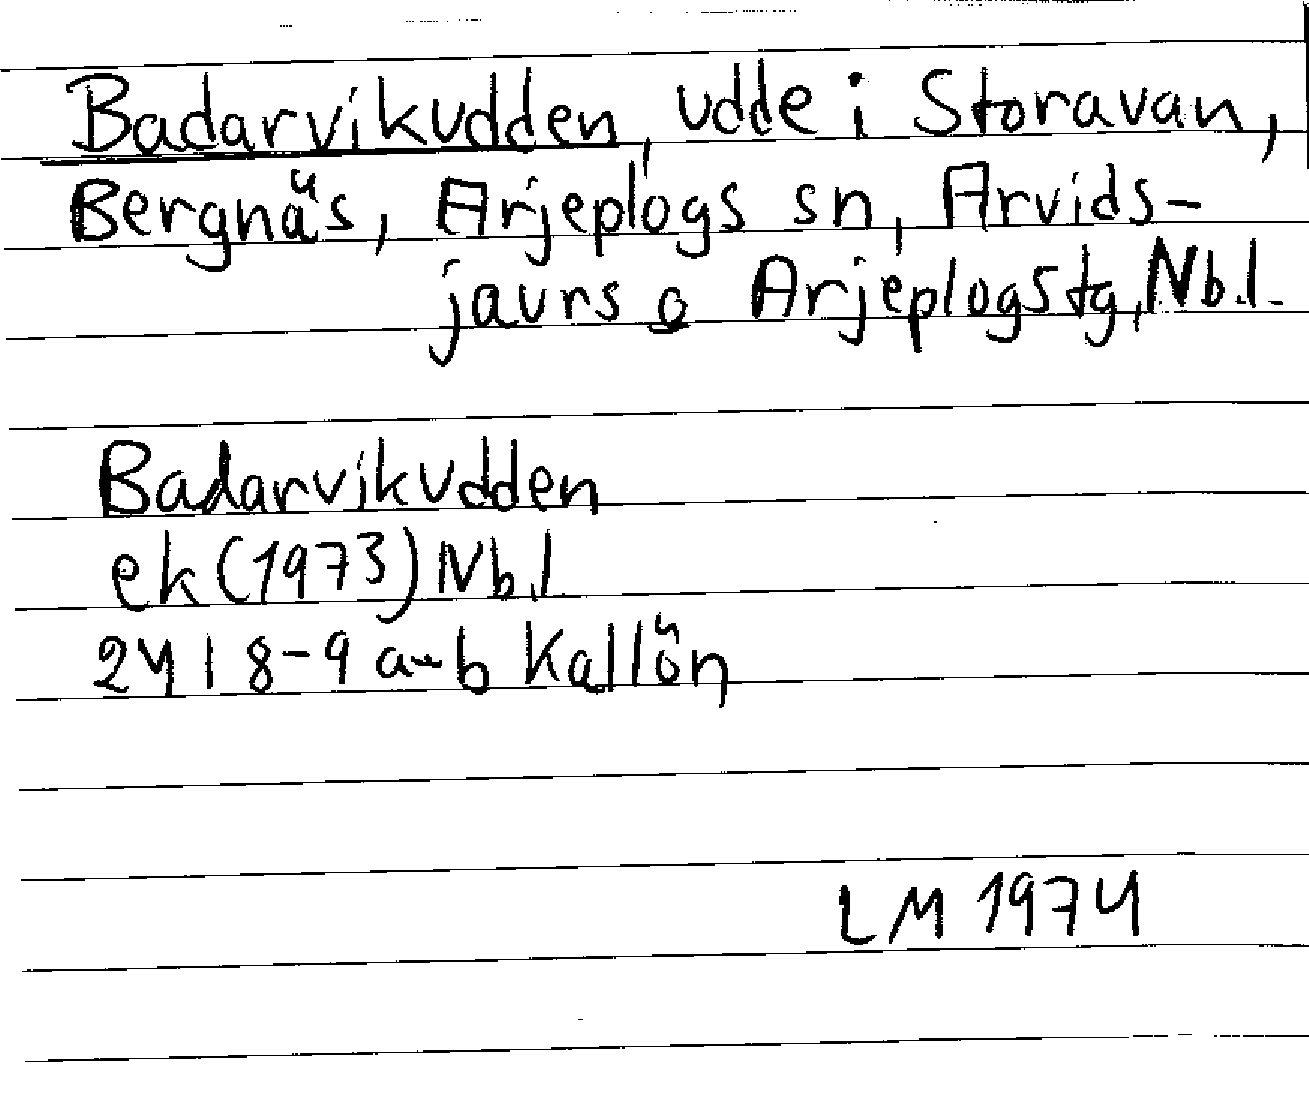 Badarvikudden, udde i Storavan,
Bergnäs, Arjeplogs sn, Arvids-
jaurs o Arjeplogs tg, Nb.l.
Badarvikudden
ek (1973) Nb.l
24 I 8-9 a-b Kallön
LM 1974